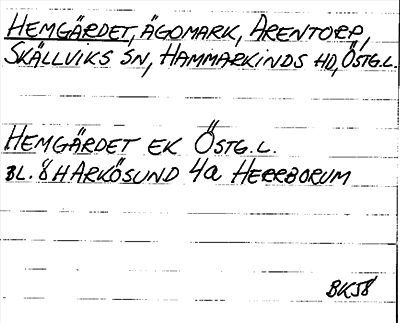 HEMGÄRDET, ÄGOMARK, ARENTORP,
SKÄLLVIKS SN, HAMMARKINDS HD, ÖSTG.L.
HEMGÄRDET EK ÖSTG.L.
BL. 8H ARKÖSUND 4a HERRBORUM
BK58